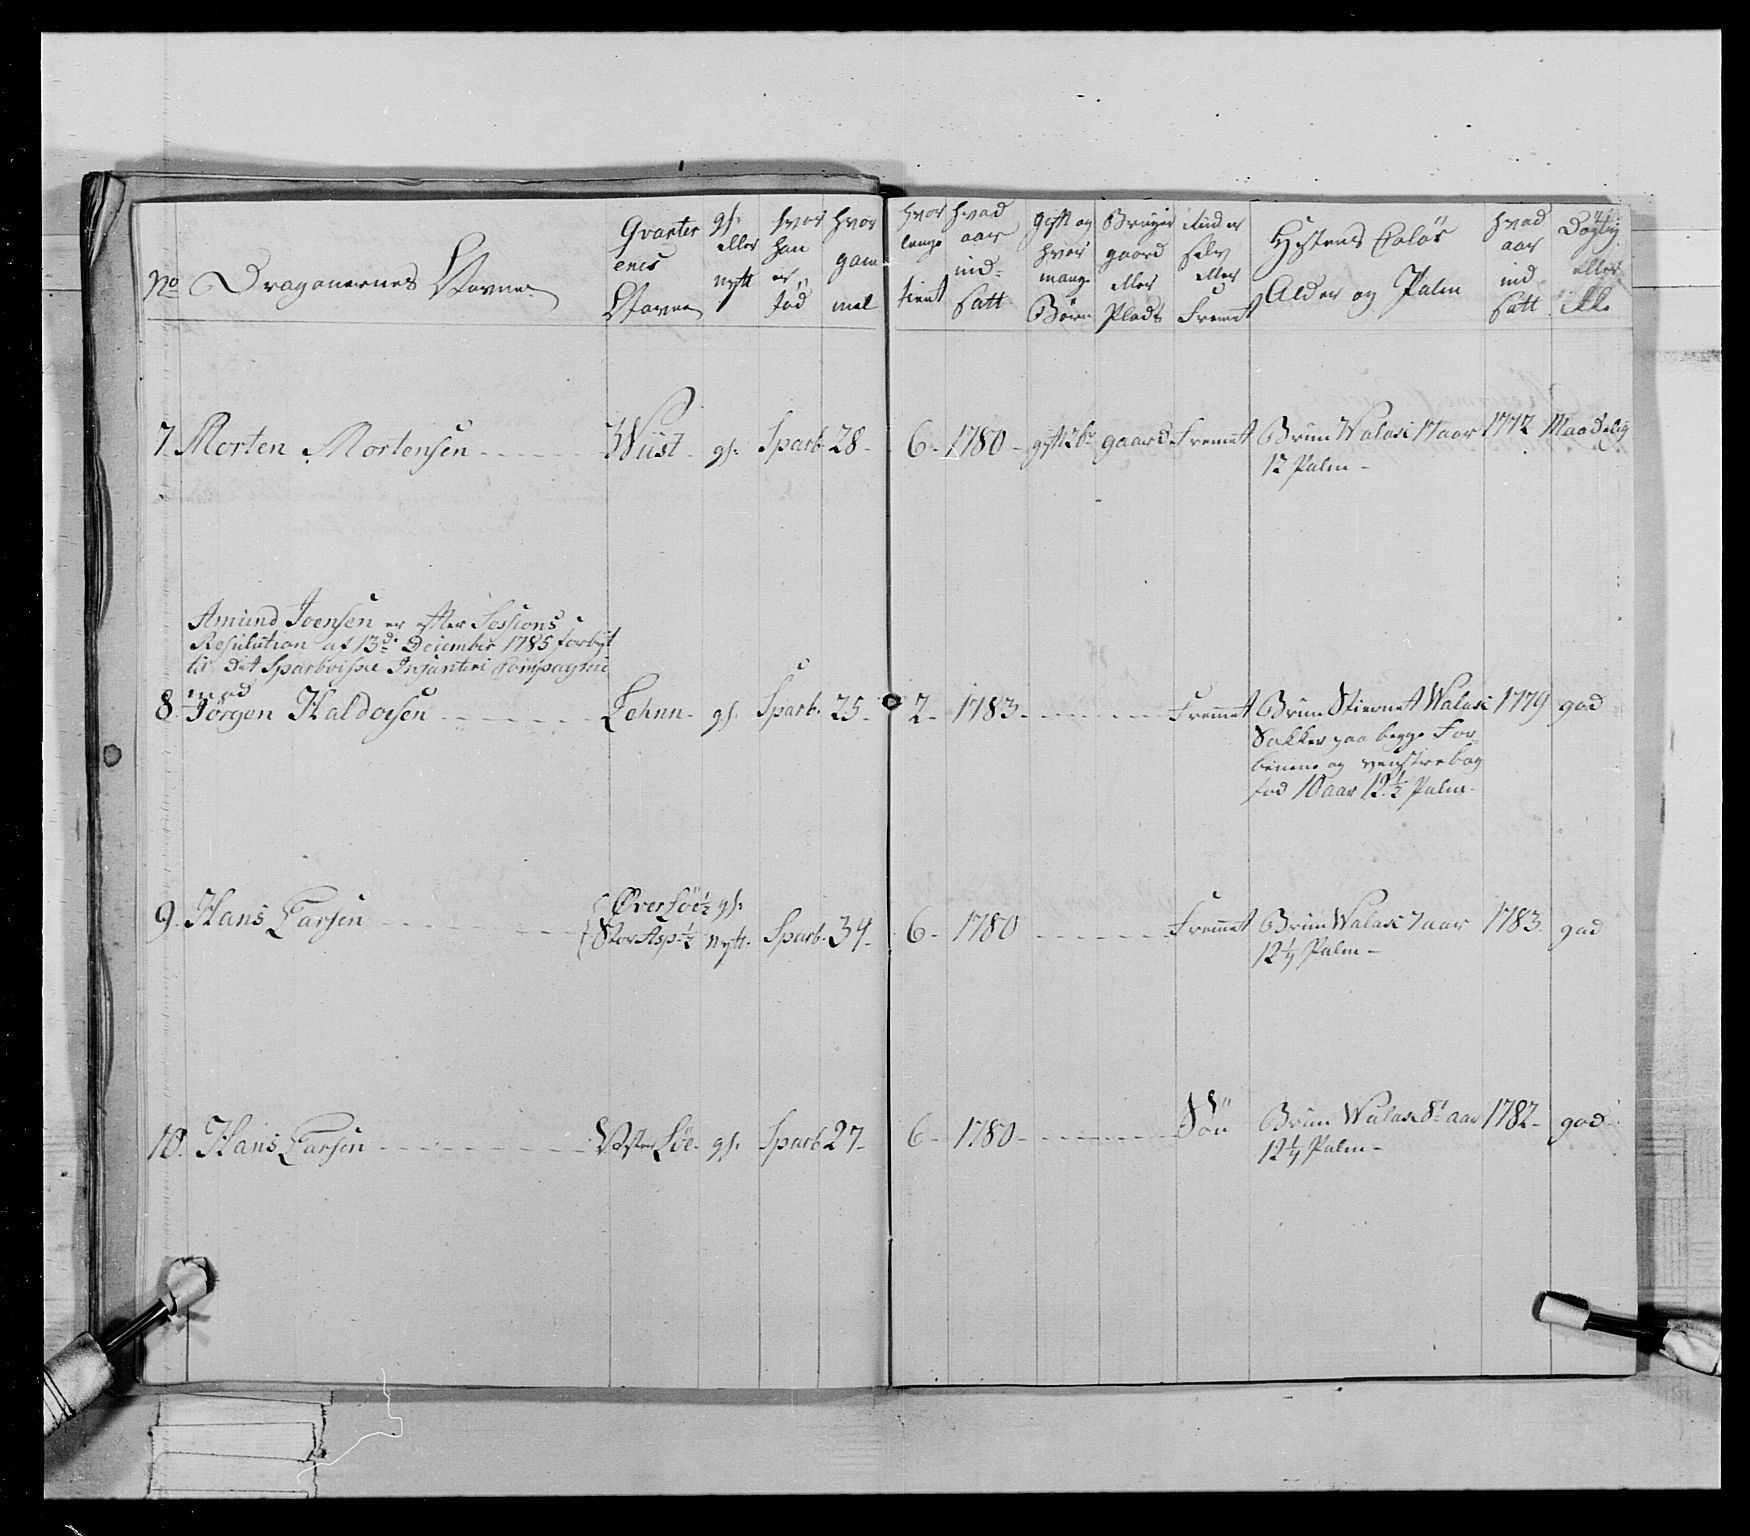 No Dragonernes Navne
Qvarter enes Navne
gl: eller nytt
hvor han er fød
hvor gam mel
hvor lenge tient
hvad aar ind- satt
gift og hvor mange Børn
Bruger gaard eller Plads
Rinder selv eller Fremet
Hestens Colör Alder og Palm
hvad aar ind satt
Dögtig eller Ikke
7. Morten Mortensen - Wiist - gl: Sparb. 28 - 6 - 1780 - gift 2 br gaard Fremet Bruun Walask 17 aar 1772 Maadelig
12 Palm -
Amund Joensen er efter Sessions
Resulution af 13de December 1785 forbyt
til det Sparboiske Infanteri Compagnie
med
8. Jörgen Haldorsen - Lehnn - gl: Sparb. 25 - 2 - 1783 - Fremet Bruun Stiernet Walask 1779 god
Sokker paa begge For
benene og venstre bag
fod 10 aar 12 1/2 Palm -
9. Hans Larsen - Över Löe 1/2 gl:
Stor Asp 1/2 nytt. Sparb. 34 - 6 - 1780 - Fremet Bruun Walask 7 aar 1783. god
12 1/4 Palm -
10. Hans Larsen - Vester Löe - gl: Sparb 27 - 6 - 1780 - Søn Bruun Walask 8t aar 1782 - god
12 1/4 Palm -